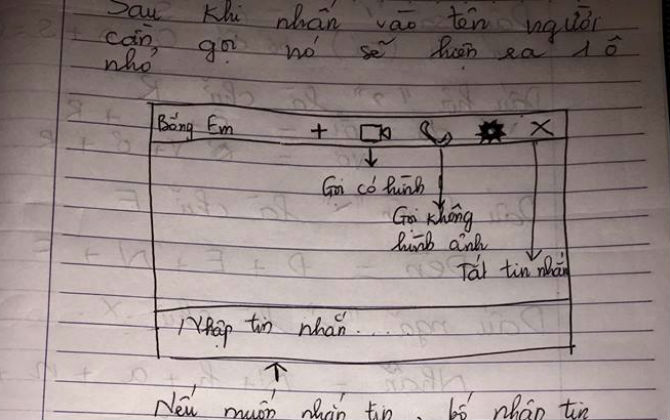 Sau khi nhấn vào tên người
cần gọi nó sẽ hiện ra 1 ô
nhỏ
Bống Em + X
Gọi có hình
Gọi không
hình ảnh
Tắt tin nhắn
Nhập tin nhắn...
Nếu muốn nhắn tin, bố nhấn tin